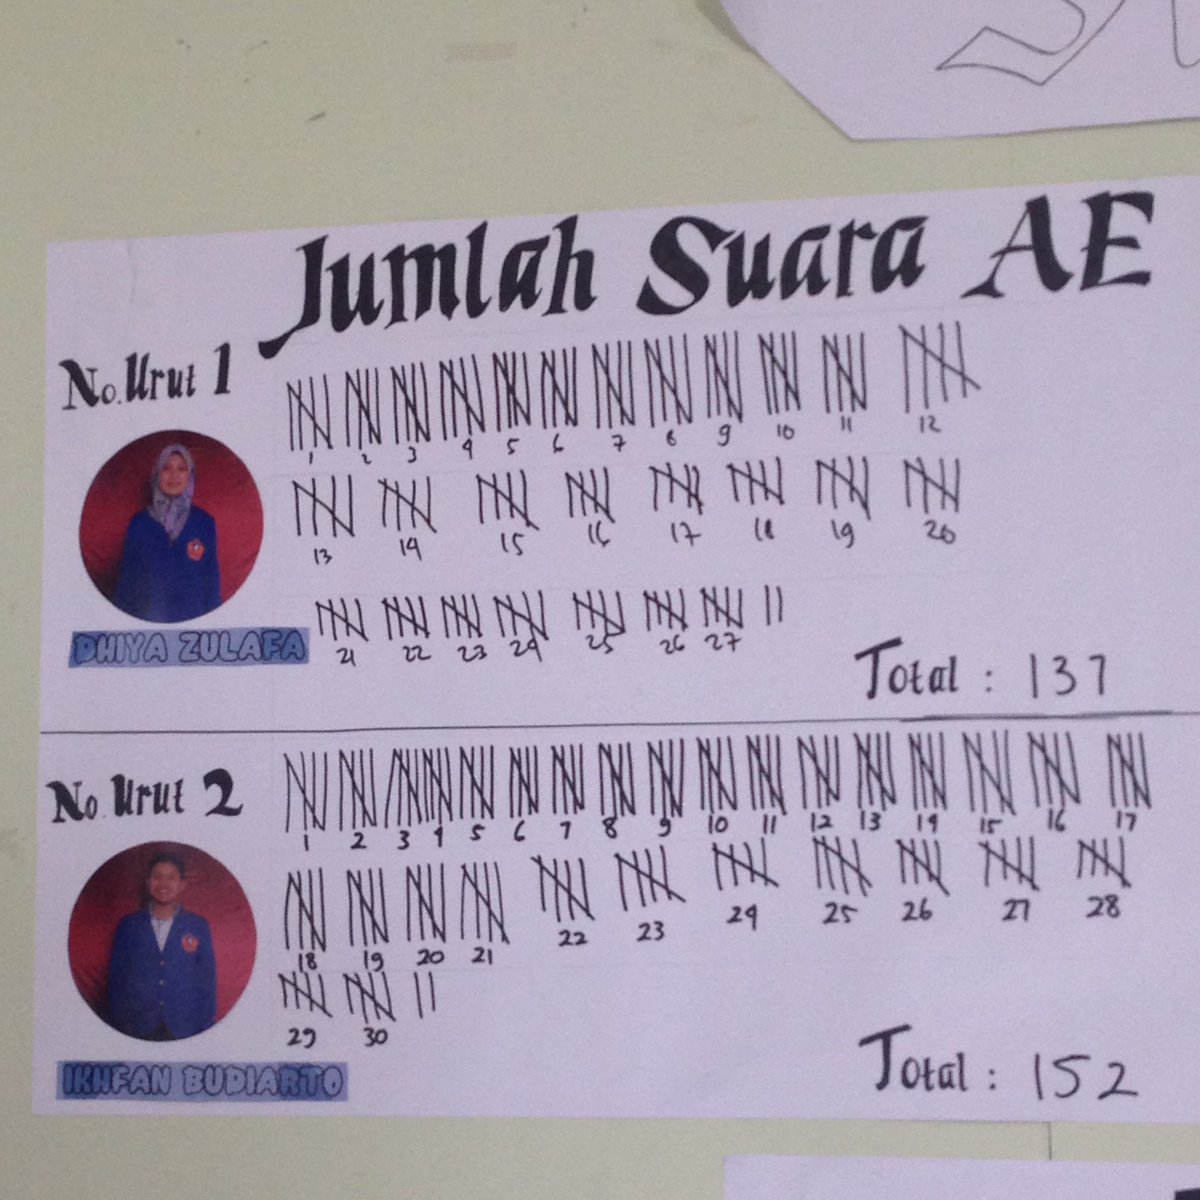 Jumlah Suara AE
No. Urut 1
1 2 3 4 5 6 7 8 9 10 11 12
13 14 15 16 17 18 19 20
21 22 23 24 25 26 27
DHIYA ZULAFA
Total : 137
No. Urut 2
1 2 3 4 5 6 7 8 9 10 11 12 13 14 15 16 17
18 19 20 21 22 23 24 25 26 27 28
29 30
IKHFAN BUDIARTO
Total : 152